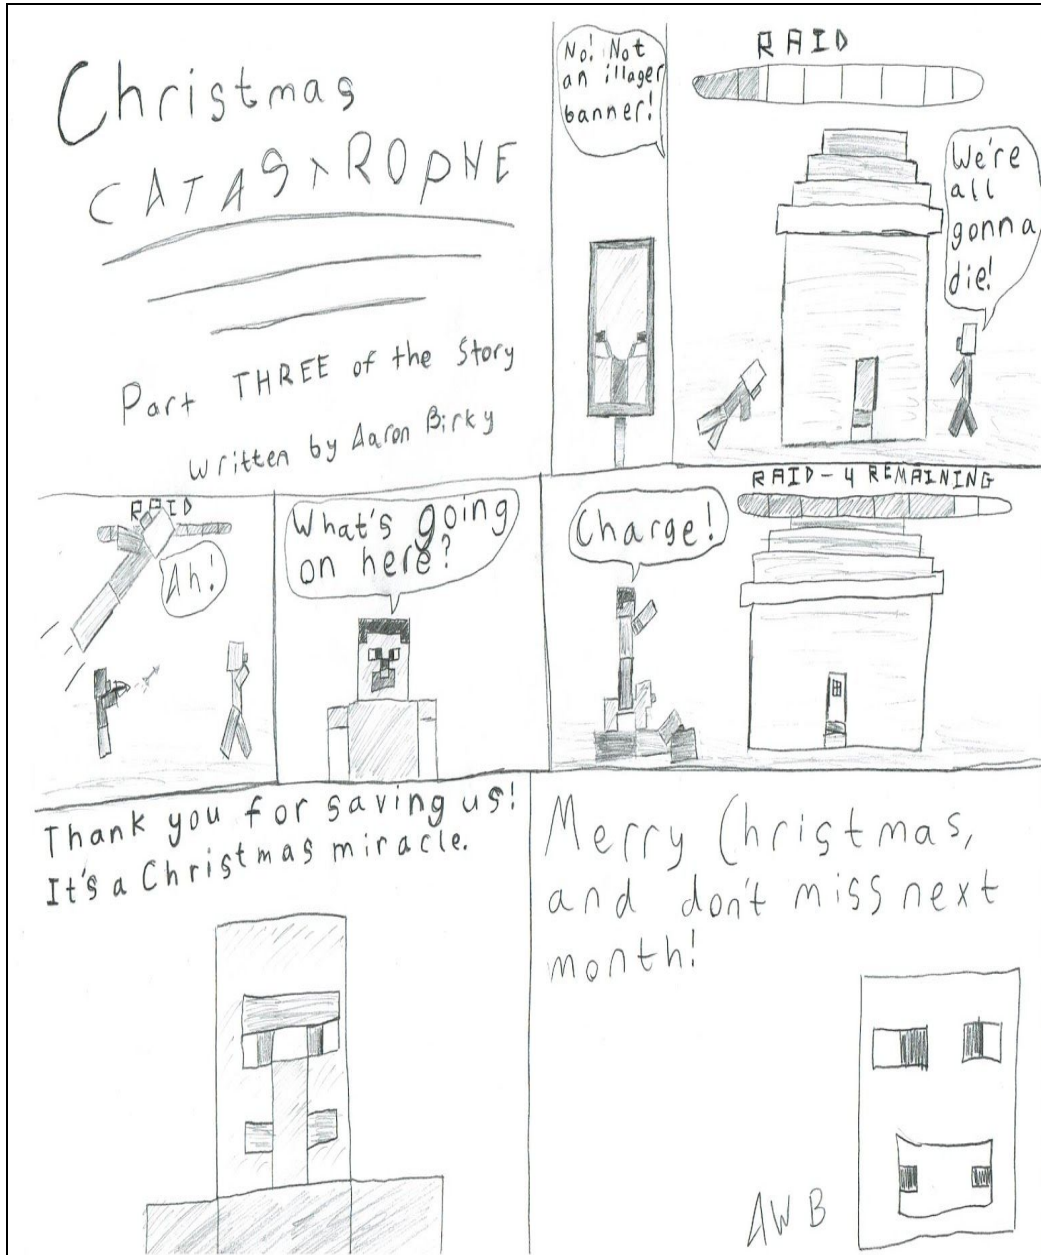 Christmas
CATASTROPHE
Part THREE of the Story
written by Aaron Birky
No! Not
an illager
banner!
RAID
We're
all
gonna
die!
RAID
Ah!
What's going
on here?
Charge!
RAID - 4 REMAINING
Thank you for saving us!
It's a Christmas miracle.
Merry Christmas,
and don't miss next
month!
AWB